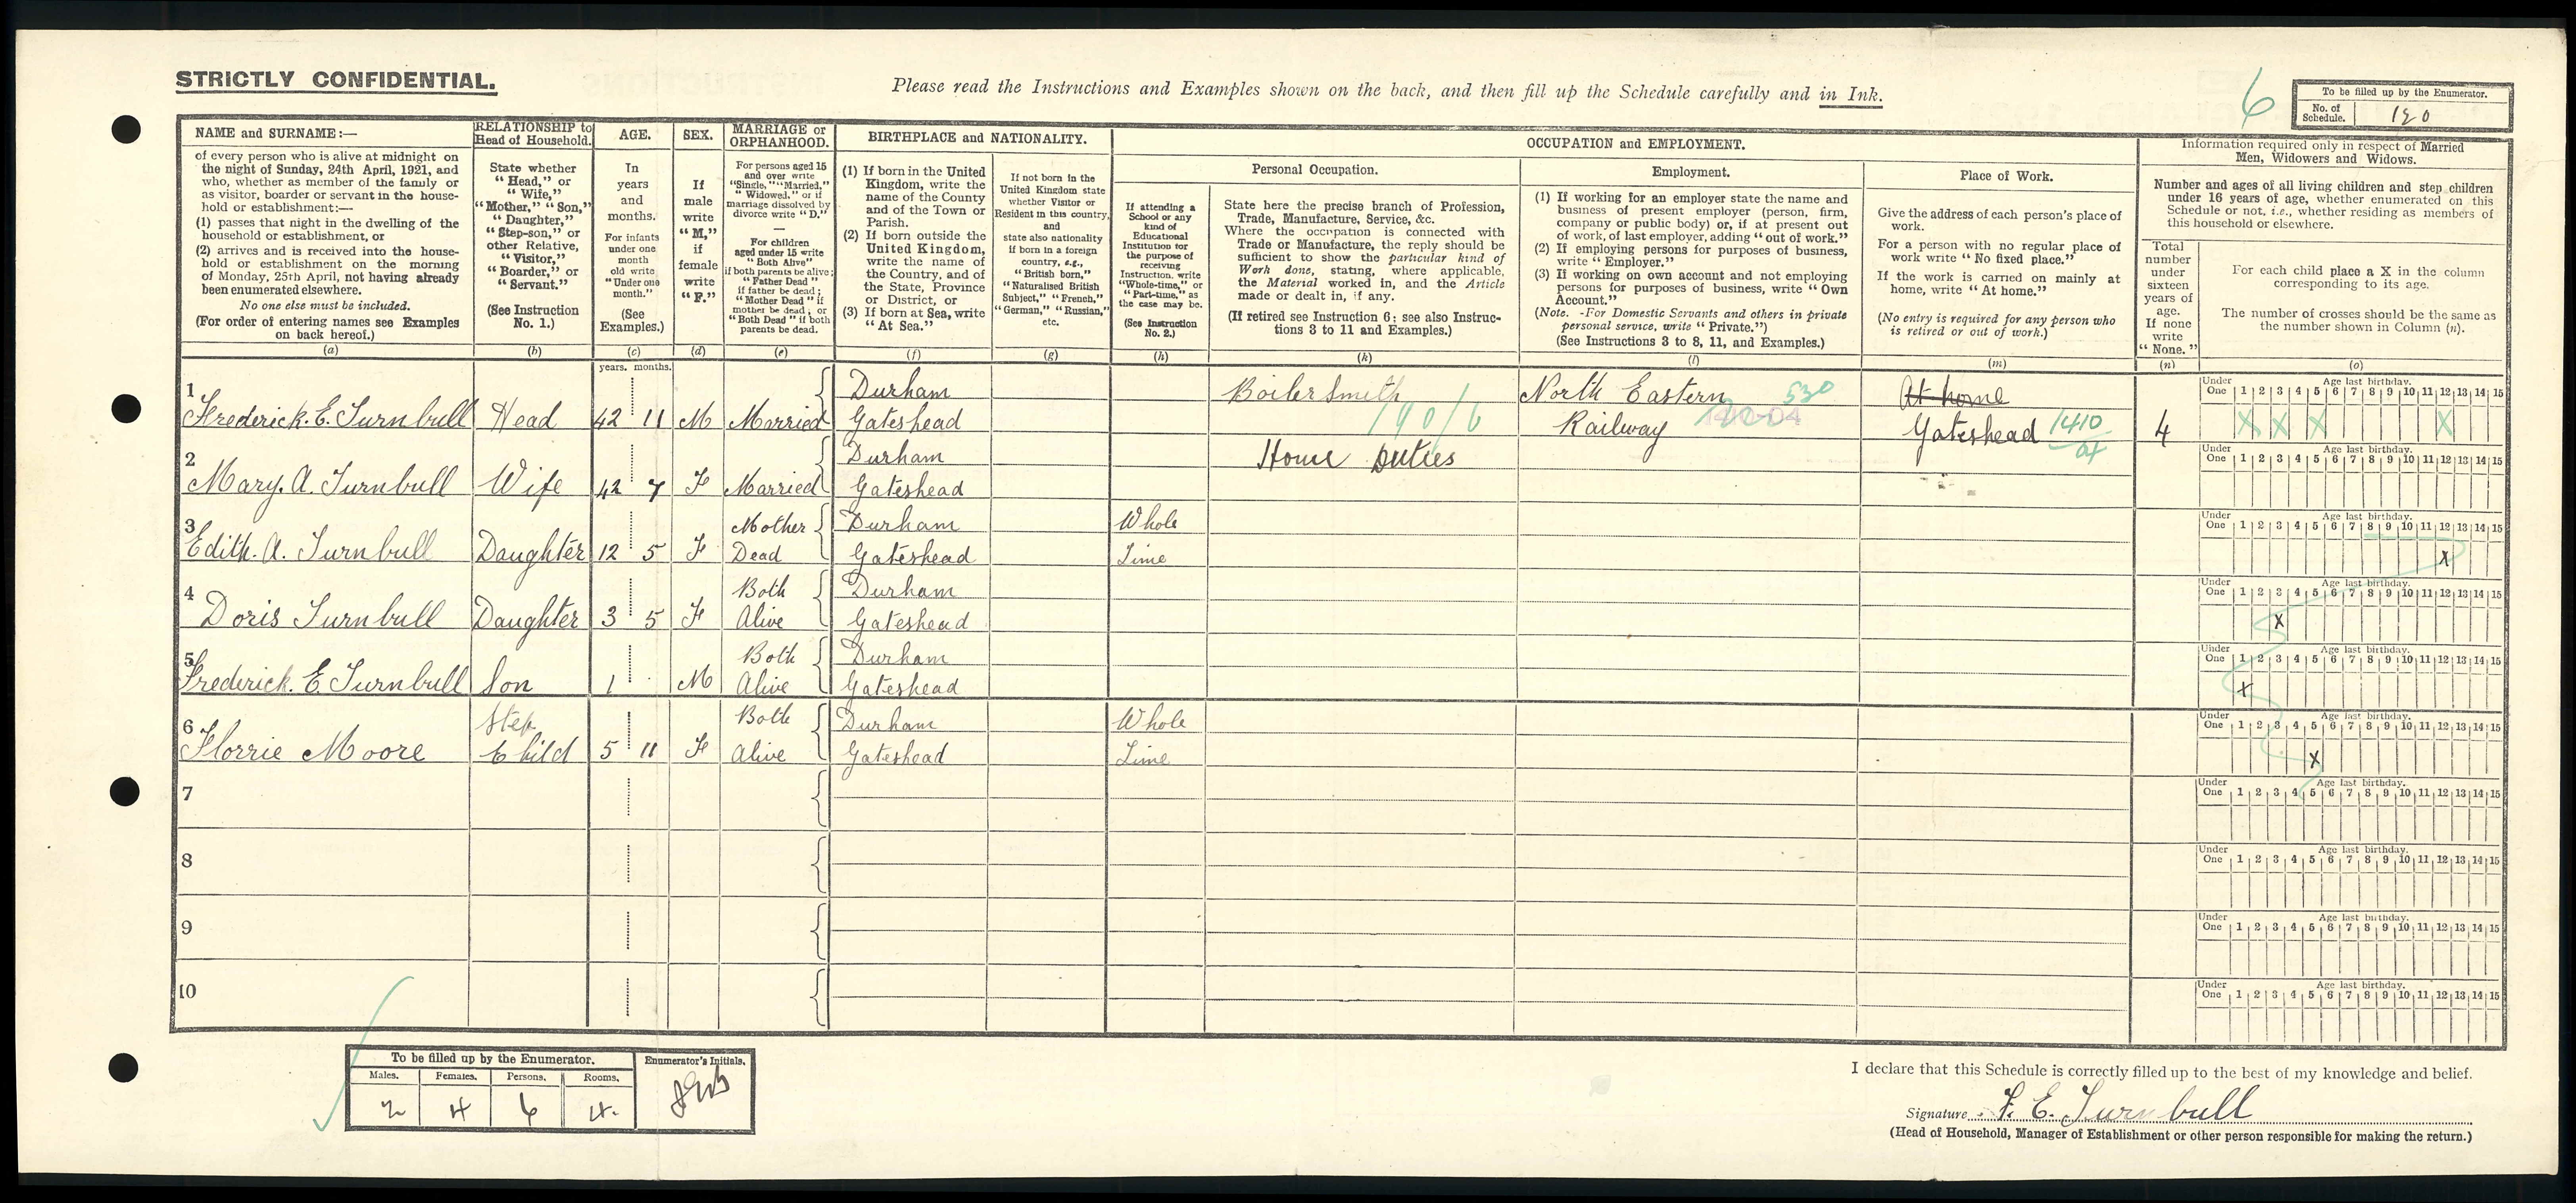 STRICTLY CONFIDENTIAL.
Please read the Instructions and Examples shown on the back, and then fill up the Schedule carefully and in Ink.
6
To be filled up by the Enumerator.
No. of Schedule. 120
NAME and SURNAME:—
of every person who is alive at midnight on
the night of Sunday, 24th April, 1921, and
who, whether as member of the family or
as visitor, boarder or servant in the house-
hold or establishment:—
(1) passes that night in the dwelling of the
household or establishment, or
(2) arrives and is received into the house-
hold or establishment on the morning
of Monday, 25th April, not having already
been enumerated elsewhere.
No one else must be included.
(For order of entering names see Examples
on back hereof.)
(a)
RELATIONSHIP to
Head of Household.
State whether
"Head," or
"Wife,"
"Mother," "Son,"
"Daughter,"
"Step-son," or
other Relative,
"Visitor,"
"Boarder," or
"Servant."
(See Instruction
No. 1.)
(b)
AGE.
In
years
and
months.
For infants
under one
month
old write
"Under one
month."
(See
Examples.)
(c)
years. months.
SEX.
If
male
write
"M,"
if
female
write
"F."
(d)
MARRIAGE or
ORPHANHOOD.
For persons aged 15
and over write
"Single," "Married,"
"Widowed," or if
marriage dissolved by
divorce write "D."
—
For children
aged under 15 write
"Both Alive"
if both parents be alive;
"Father Dead"
if father be dead;
"Mother Dead" if
mother be dead; or
"Both Dead" if both
parents be dead.
(e)
BIRTHPLACE and NATIONALITY.
(1) If born in the United
Kingdom, write the
name of the County
and of the Town or
Parish.
(2) If born outside the
United Kingdom,
write the name of
the Country, and of
the State, Province
or District, or
(3) If born at Sea, write
"At Sea."
(f)
If not born in the
United Kingdom state
whether Visitor or
Resident in this country,
and
state also nationality
if born in a foreign
country, e.g.,
"British born,"
"Naturalised British
Subject," "French,"
"German," "Russian,"
etc.
(g)
OCCUPATION and EMPLOYMENT.
Personal Occupation.
If attending a
School or any
kind of
Educational
Institution for
the purpose of
receiving
Instruction, write
"Whole-time," or
"Part-time," as
the case may be.
(See Instruction
No. 2.)
(h)
State here the precise branch of Profession,
Trade, Manufacture, Service, &c.
Where the occupation is connected with
Trade or Manufacture, the reply should be
sufficient to show the particular kind of
Work done, stating, where applicable,
the Material worked in, and the Article
made or dealt in, if any.
(If retired see Instruction 6; see also Instruc-
tions 3 to 11 and Examples.)
(k)
Employment.
(1) If working for an employer state the name and
business of present employer (person, firm,
company or public body) or, if at present out
of work, of last employer, adding "out of work."
(2) If employing persons for purposes of business,
write "Employer."
(3) If working on own account and not employing
persons for purposes of business, write "Own
Account."
(Note.—For Domestic Servants and others in private
personal service, write "Private.")
(See Instructions 3 to 8, 11, and Examples.)
(l)
Place of Work.
Give the address of each person's place of
work.
For a person with no regular place of
work write "No fixed place."
If the work is carried on mainly at
home, write "At home."
(No entry is required for any person who
is retired or out of work.)
(m)
Information required only in respect of Married
Men, Widowers and Widows.
Number and ages of all living children and step children
under 16 years of age, whether enumerated on this
Schedule or not, i.e., whether residing as members of
this household or elsewhere.
Total
number
under
sixteen
years of
age.
If none
write
"None."
(n)
For each child place a X in the column
corresponding to its age.
The number of crosses should be the same as
the number shown in Column (n).
(o)
Under One Age last birthday. 1 2 3 4 5 6 7 8 9 10 11 12 13 14 15
1 Frederick. E. Turnbull Head 42 11 M Married Durham Gateshead Boiler Smith 190/6 North Eastern Railway 530 At home Gateshead 1410 4 X X X X
2 Mary. A. Turnbull Wife 42 7 F Married Durham Gateshead Home Duties
Under One Age last birthday. 1 2 3 4 5 6 7 8 9 10 11 12 13 14 15
3 Edith. A. Turnbull Daughter 12 5 F Mother Dead Durham Gateshead Whole Time
Under One Age last birthday. 1 2 3 4 5 6 7 8 9 10 11 12 13 14 15
X
4 Doris Turnbull Daughter 3 5 F Both Alive Durham Gateshead
Under One Age last birthday. 1 2 3 4 5 6 7 8 9 10 11 12 13 14 15
X
5 Frederick. E. Turnbull Son 1 M Both Alive Durham Gateshead
Under One Age last birthday. 1 2 3 4 5 6 7 8 9 10 11 12 13 14 15
X
6 Florrie Moore Step Child 5 11 F Both Alive Durham Gateshead Whole Time
Under One Age last birthday. 1 2 3 4 5 6 7 8 9 10 11 12 13 14 15
X
7
Under One Age last birthday. 1 2 3 4 5 6 7 8 9 10 11 12 13 14 15
8
Under One Age last birthday. 1 2 3 4 5 6 7 8 9 10 11 12 13 14 15
9
Under One Age last birthday. 1 2 3 4 5 6 7 8 9 10 11 12 13 14 15
10
Under One Age last birthday. 1 2 3 4 5 6 7 8 9 10 11 12 13 14 15
To be filled up by the Enumerator.
Males. Females. Persons. Rooms.
2 4 6 4.
Enumerator's Initials.
I declare that this Schedule is correctly filled up to the best of my knowledge and belief.
Signature F. E. Turnbull
(Head of Household, Manager of Establishment or other person responsible for making the return.)